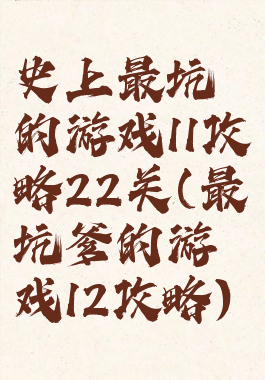 史上最坑
的游戏11攻
略22关(最
坑爹的游
戏12攻略)